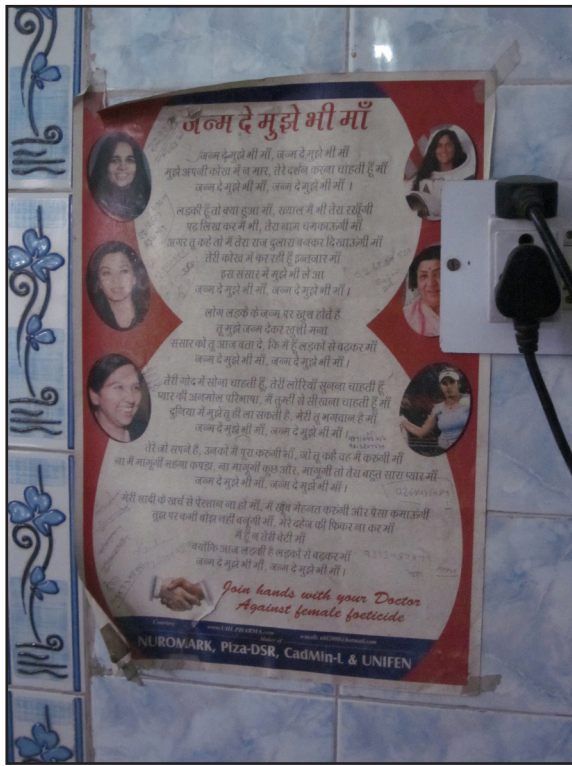 जन्म दे मुझे भी माँ
जन्म दे मुझे भी माँ, जन्म दे मुझे भी माँ
मुझे अपनी कोख में न मार, तेरे दर्शन करना चाहती हूँ माँ
जन्म दे मुझे भी माँ, जन्म दे मुझे भी माँ ।
लड़की हूँ तो क्या हुआ माँ, ख्याल मैं भी तेरा रखूँगी
पढ़ लिख कर मैं भी, तेरा नाम चमकाऊँगी माँ
अगर तू कहे तो मैं तेरा राज दुलारा बनकर दिखाऊँगी माँ
तेरी कोख में कर रही हूँ इन्तजार माँ
इस संसार में मुझे भी ले आ
जन्म दे मुझे भी माँ, जन्म दे मुझे भी माँ ।
लोग लड़के के जन्म पर खुश होते हैं
तू मुझे जन्म देकर खुशी मना
संसार को तू आज बता दे, कि मैं हूँ लड़कों से बढ़कर माँ
जन्म दे मुझे भी माँ, जन्म दे मुझे भी माँ ।
तेरी गोद में सोना चाहती हूँ, तेरी लोरियाँ सुनना चाहती हूँ
प्यार की अनमोल परिभाषा, मैं तुम्ही से सीखना चाहती हूँ माँ
दुनिया में मुझे तू ही ला सकती है, मेरी तू भगवान है माँ
जन्म दे मुझे भी माँ, जन्म दे मुझे भी माँ ।
तेरे जो सपने है, उनको मैं पूरा करुंगी माँ, जो तू कहे वह मैं करुंगी माँ
ना मैं मांगूगी महंगा कपड़ा, ना मांगूगी कुछ और, मांगूगी तो तेरा बहुत सारा प्यार माँ
जन्म दे मुझे भी माँ, जन्म दे मुझे भी माँ ।
मेरी शादी के खर्च से परेशान ना हो माँ, मैं खूब मेहनत करुंगी और पैसा कमाऊंगी
तुझ पर कभी बोझ नहीं बनूंगी माँ, मेरे दहेज की फिकर ना कर माँ
मैं हूँ न तेरी बेटी माँ
क्योंकि आज लड़की है लड़कों से बढ़कर माँ
जन्म दे मुझे भी माँ, जन्म दे मुझे भी माँ ।
Join hands with your Doctor
Against female foeticide
NUROMARK, Piza-DSR, CadMin-L & UNIFEN